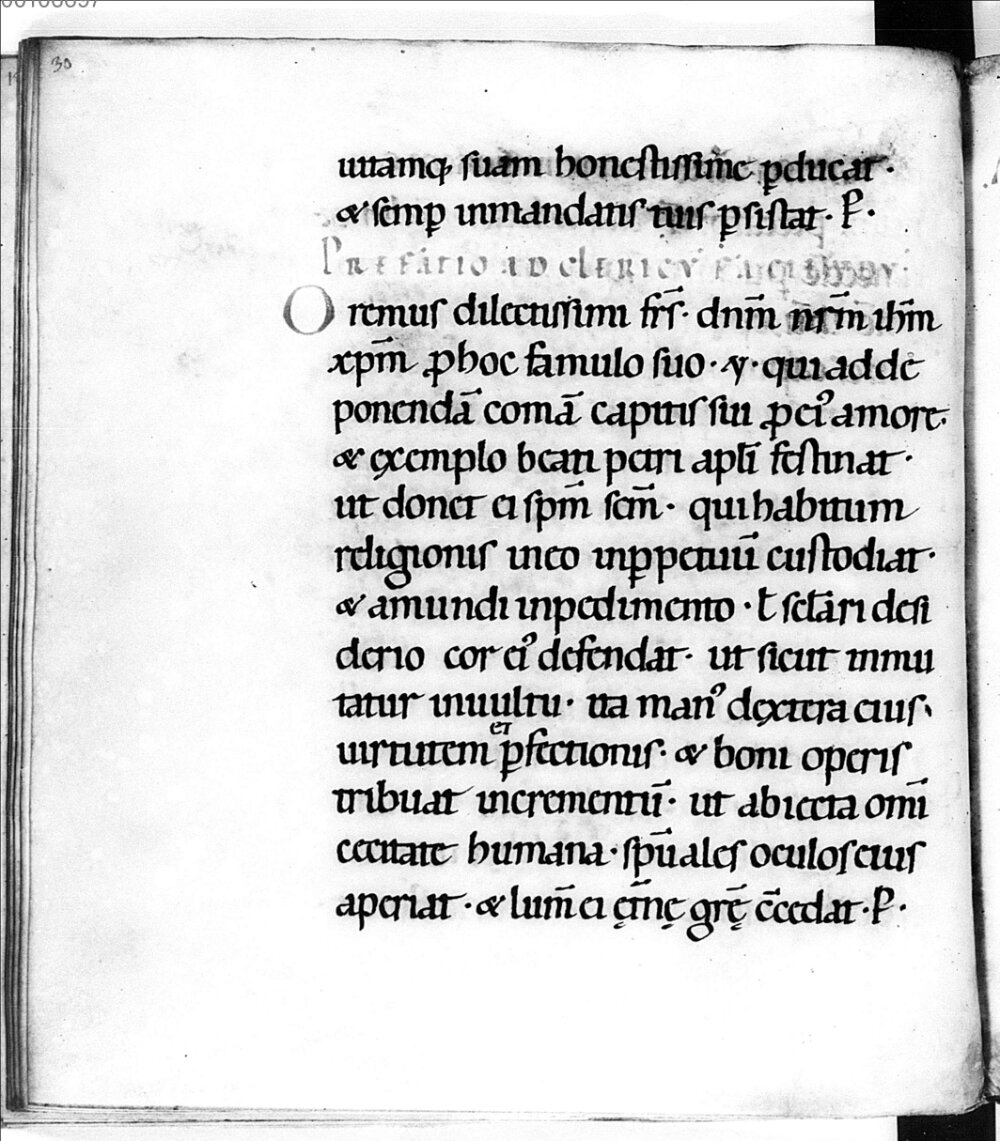 30
uitamq; suam honestissime ꝑducat·
& semꝑ inmandatis tuis ꝑsistat· P·
Prefatio ad clericu faciendu·
Oremus dilectissimi fr̄s· dnm̄ nr̄m ihm̄
xpm̄ ꝓhoc famulo suo· N· quiadde
ponendā comā capitis sui ꝓeiꝰ amore·
& exemplo beati petri apl̄i festinat·
ut donet ei spm̄ scm̄· quihabitum
religionis ineo inꝑpetuū custodiat·
& amundi inpedimento· ł scl̄ari desi
derio cor eiꝰ defendat· ut sicut inmu
tatur inuultu· ita manꝰ dextera eius·
uirtutem et ꝑfectionis· & boni operis
tribuat incrementū· ut abiecta om̄i
cecitate humana· sp̄uales oculos eius
aperiat· & lum̄ ei ęt̄nę gr̄ę c̄cedat· P·